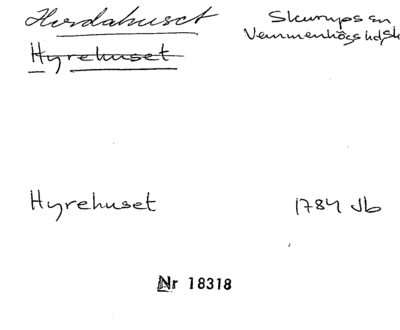 Herdahuset Skurups sn
Hyrehuset Vemmenhögs hd, Sk
Hyrehuset 1784 Jb
Nr 18318